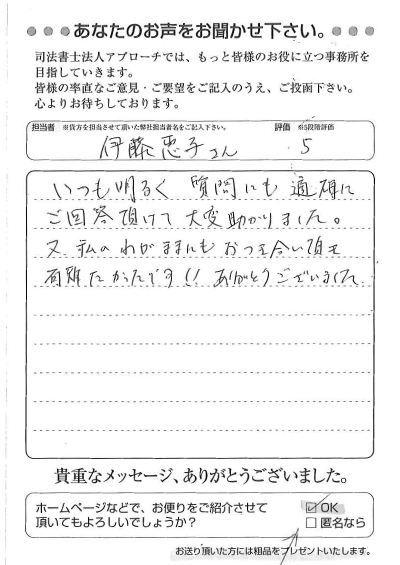 ●●●● あなたのお声をお聞かせ下さい。 ●●●●
司法書士法人アプローチでは、もっと皆様のお役に立つ事務所を
目指していきます。
皆様の率直なご意見・ご要望をご記入のうえ、ご投函下さい。
心よりお待ちしております。
担当者 ※貴方を担当させて頂いた弊社担当者名をご記入下さい。 評価 ※5段階評価
伊藤恵子さん 5
いつも明るく 質問にも 適確に
ご回答頂けて 大変助かりました。
又、私のわがままにも おつき合い頂き
有難たかったです!! ありがとうございました
貴重なメッセージ、ありがとうございました。
ホームページなどで、お便りをご紹介させて
頂いてもよろしいでしょうか?
☑ OK
□ 匿名なら
お送り頂いた方には粗品をプレゼントいたします。